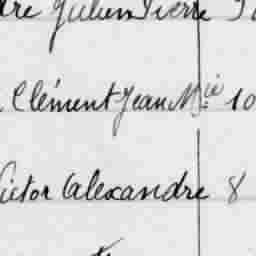 Julien Pierre
Clément Jean M.ie 10
Victor Calexandre 8